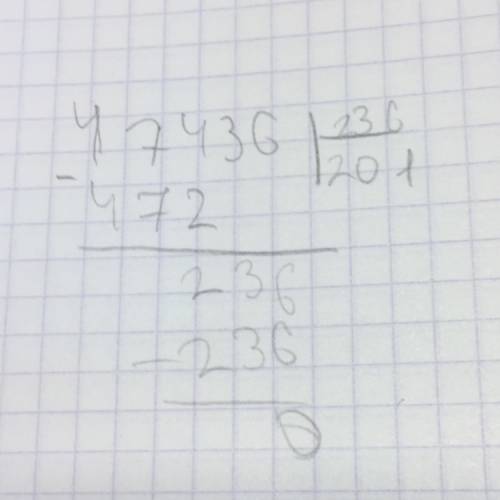 47436 | 236
- 472 | 201
236
- 236
0